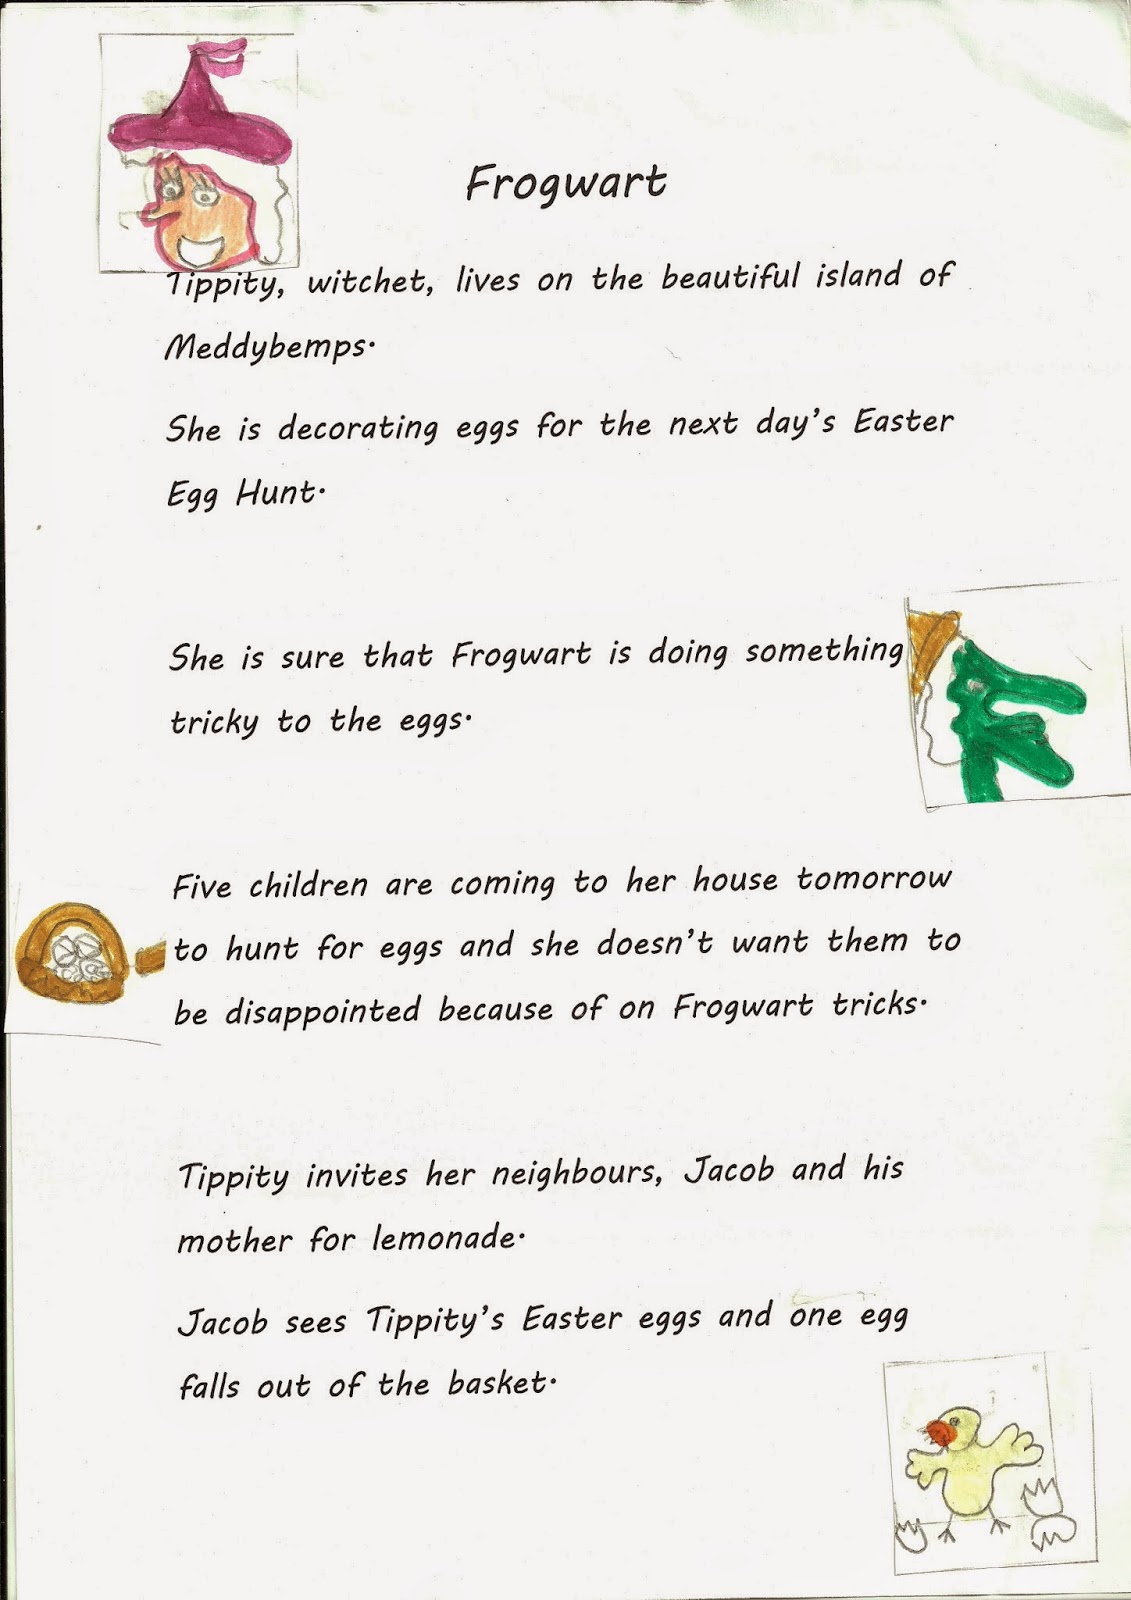 Frogwart
Tippity, witchet, lives on the beautiful island of
Meddybemps.
She is decorating eggs for the next day's Easter
Egg Hunt.
She is sure that Frogwart is doing something
tricky to the eggs.
Five children are coming to her house tomorrow
to hunt for eggs and she doesn't want them to
be disappointed because of on Frogwart tricks.
Tippity invites her neighbours, Jacob and his
mother for lemonade.
Jacob sees Tippity's Easter eggs and one egg
falls out of the basket.